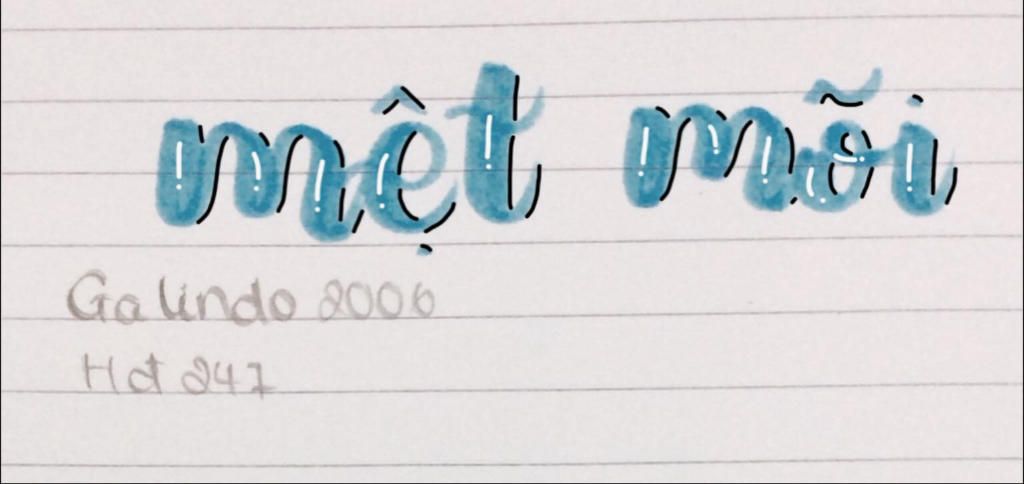 mệt mõi
Galindo 2006
Hdt 247